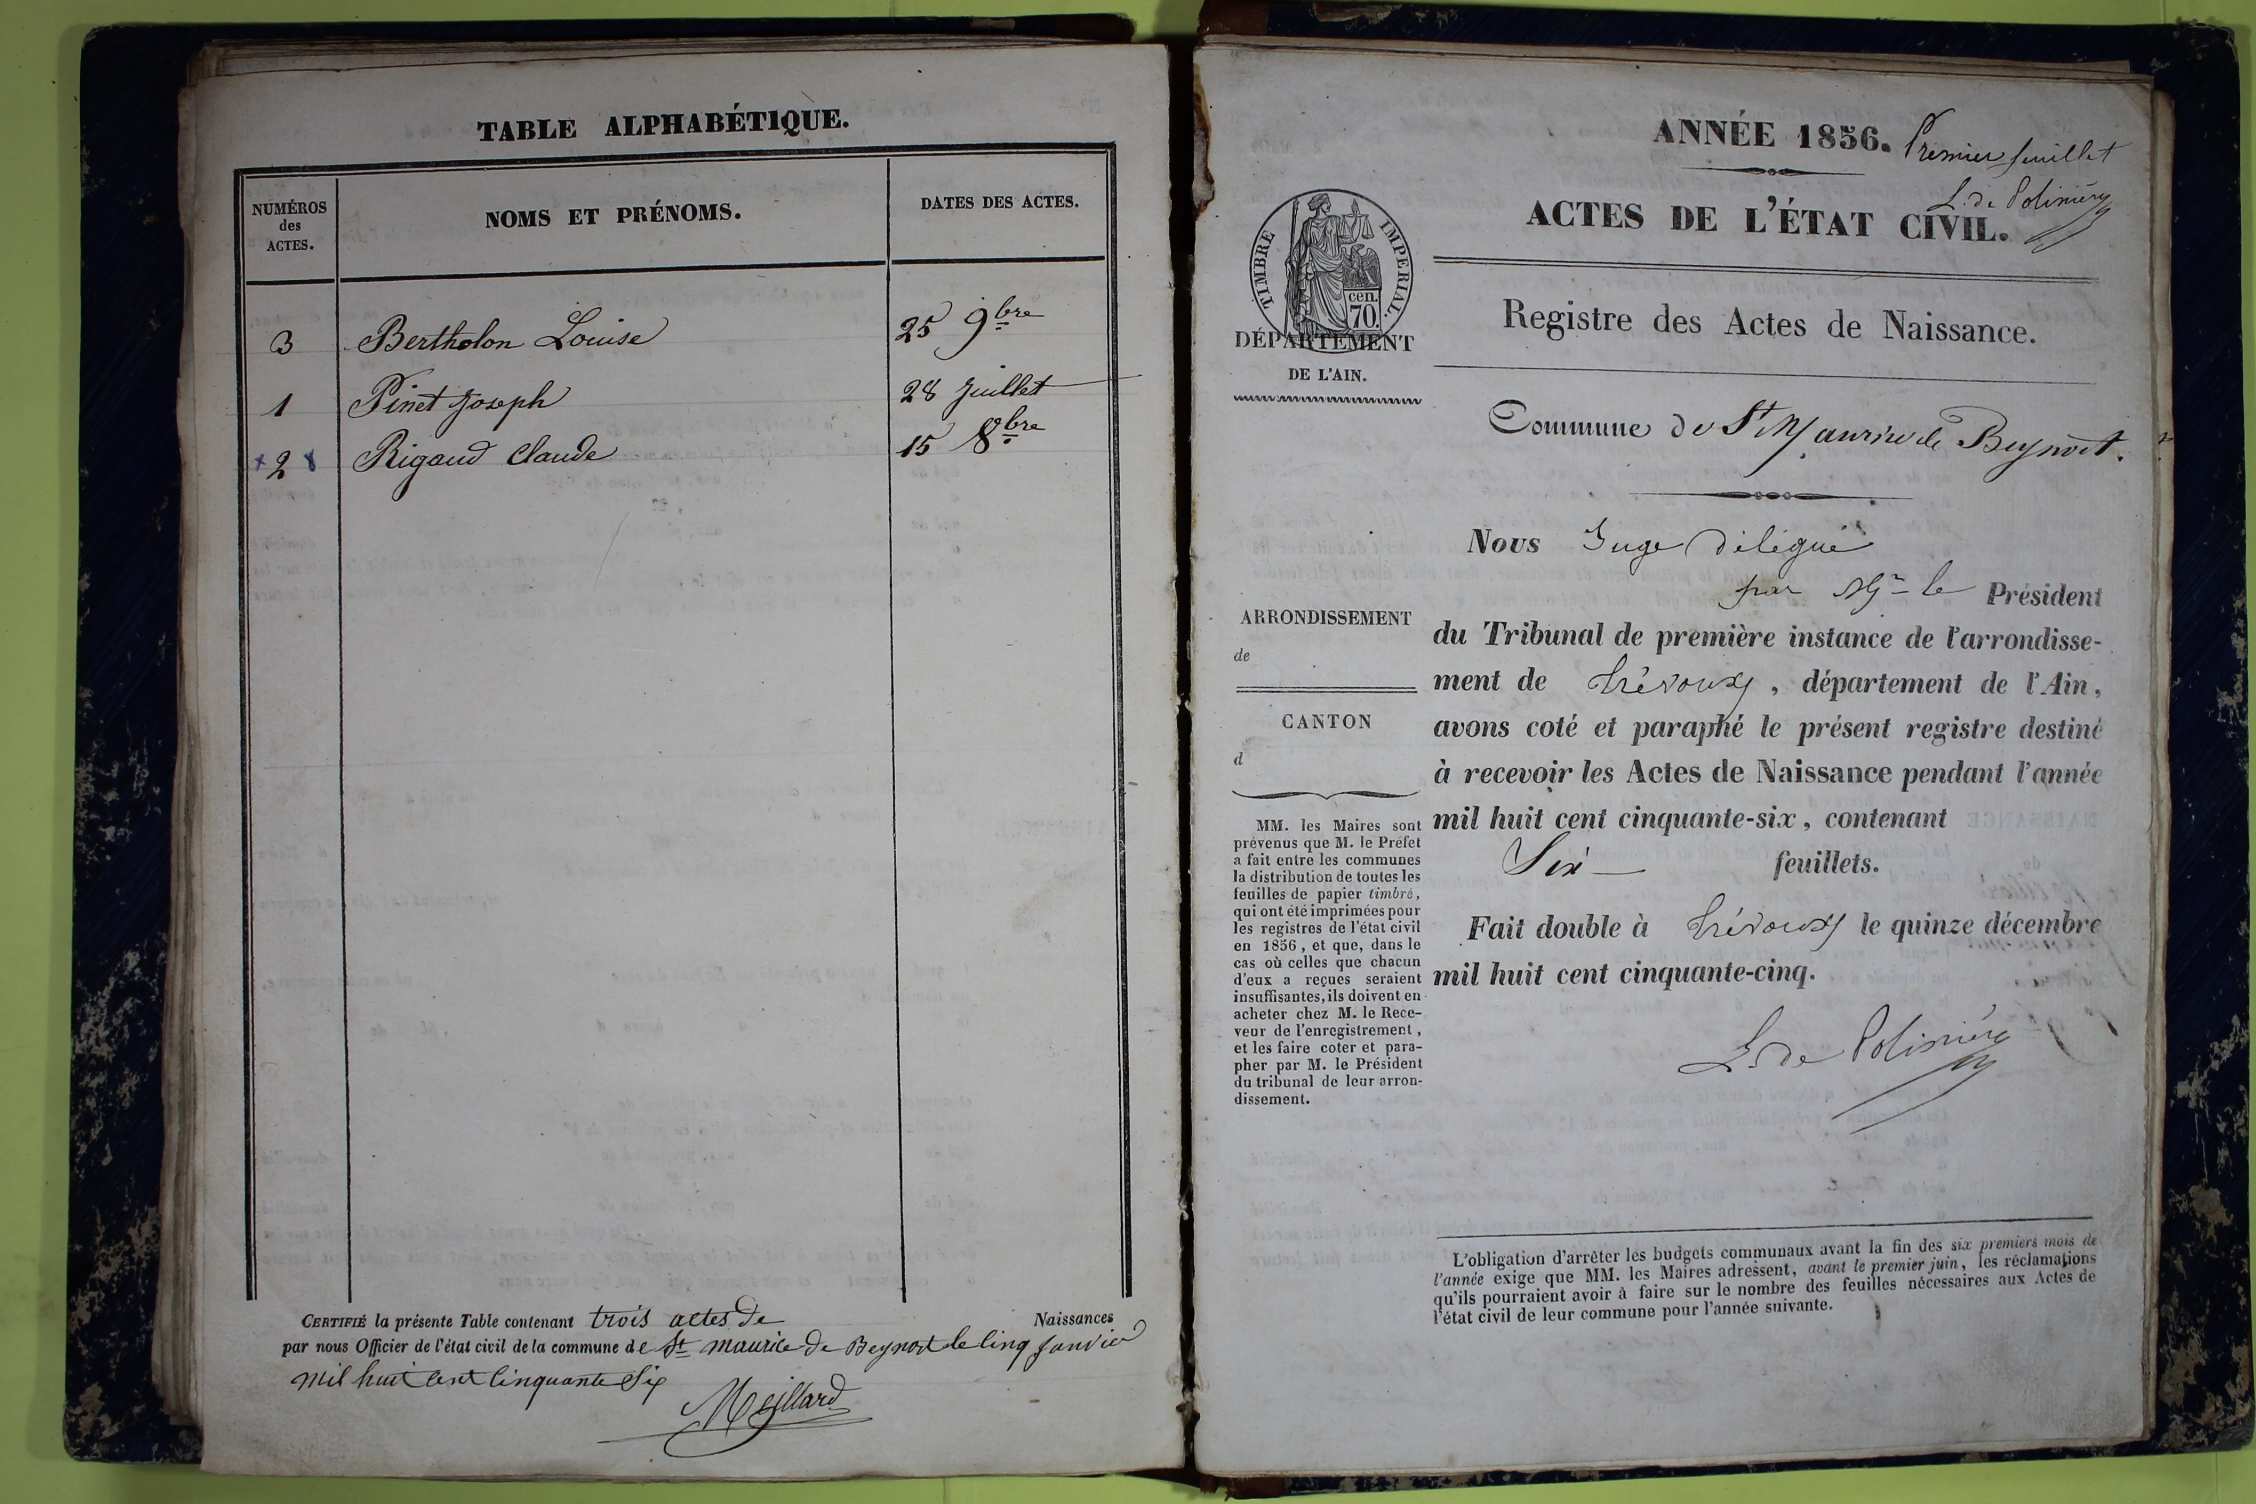 TABLE ALPHABÉTIQUE.
NUMÉROS
des
ACTES.
NOMS ET PRÉNOMS.
DATES DES ACTES.
3 Bertholon Louise 25 9bre
1 Pinet Joseph 28 Juillet
2 Rigaud Claude 15 8bre
CERTIFIÉ la présente Table contenant trois actes de Naissances
par nous Officier de l'état civil de la commune de St maurice de Beynost le cinq Janvier
mil huit cent cinquante Six
Meillard
ANNÉE 1856. Premier feuillet
L. de Polinière
ACTES DE L'ÉTAT CIVIL.
TIMBRE IMPERIAL.
cen.
70.
DÉPARTEMENT
DE L'AIN.
Registre des Actes de Naissance.
Commune de St Maurice de Beynost.
Nous Juge délégué
par Mr le Président
du Tribunal de première instance de l'arrondisse-
ment de Trévoux, département de l'Ain,
avons coté et paraphé le présent registre destiné
à recevoir les Actes de Naissance pendant l'année
mil huit cent cinquante-six, contenant
Six feuillets.
Fait double à Trévoux le quinze décembre
mil huit cent cinquante-cinq.
L. de Polinière
ARRONDISSEMENT
de
CANTON
d
MM. les Maires sont
prévenus que M. le Préfet
a fait entre les communes
la distribution de toutes les
feuilles de papier timbré,
qui ont été imprimées pour
les registres de l'état civil
en 1856, et que, dans le
cas où celles que chacun
d'eux a reçues seraient
insuffisantes, ils doivent en
acheter chez M. le Rece-
veur de l'enregistrement,
et les faire coter et para-
pher par M. le Président
du tribunal de leur arron-
dissement.
L'obligation d'arrêter les budgets communaux avant la fin des six premiers mois de
l'année exige que MM. les Maires adressent, avant le premier juin, les réclamations
qu'ils pourraient avoir à faire sur le nombre des feuilles nécessaires aux Actes de
l'état civil de leur commune pour l'année suivante.